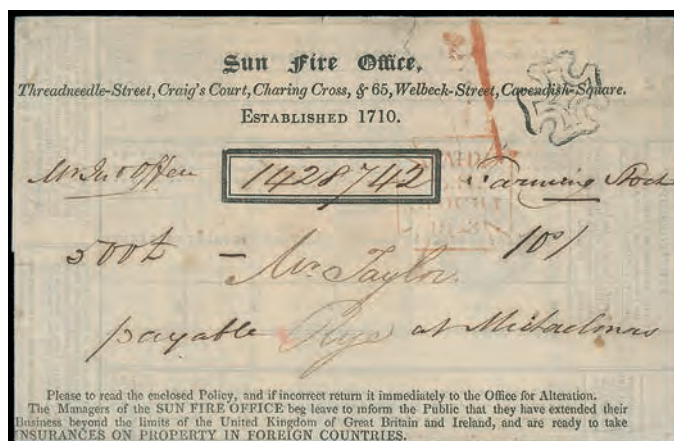 Sun Fire Office,
Threadneedle-Street, Craig's Court, Charing Cross, & 65, Welbeck-Street, Cavendish-Square.
ESTABLISHED 1710.
Mr Jno Offen 1428742 Farming Stock
500£ — Mr. Taylor 10/
payable Rye at Michaelmas
Please to read the enclosed Policy, and if incorrect return it immediately to the Office for Alteration.
The Managers of the SUN FIRE OFFICE beg leave to inform the Public that they have extended their
Business beyond the limits of the United Kingdom of Great Britain and Ireland, and are ready to take
INSURANCES ON PROPERTY IN FOREIGN COUNTRIES.